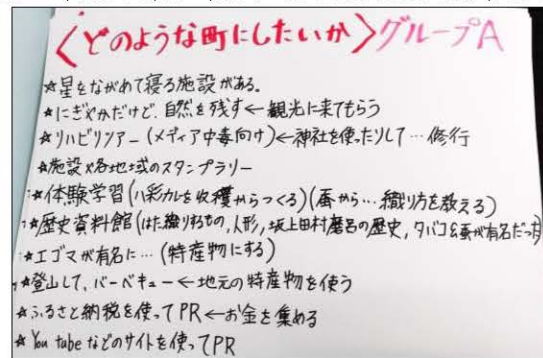 〈どのような町にしたいか〉グループA
☆星をながめて寝る施設がある。
☆にぎやかだけど、自然を残す←観光に来てもらう
☆リハビリツアー(メディア中毒向け)←神社を使ったりして…修行
☆施設×各地域のスタンプラリー
☆体験学習(八彩カレを収穫からつくる)(蚕から…織り方を教える)
☆歴史資料館(はた織りるもの,人形,坂上田村麿呂の歴史,タバコ&蚕が有名だった)
☆エゴマが有名に…(特産物にする)
☆登山して、バーベキュー←地元の特産物を使う
☆ふるさと納税を使ってPR←お金を集める
☆You tubeなどのサイトを使ってPR